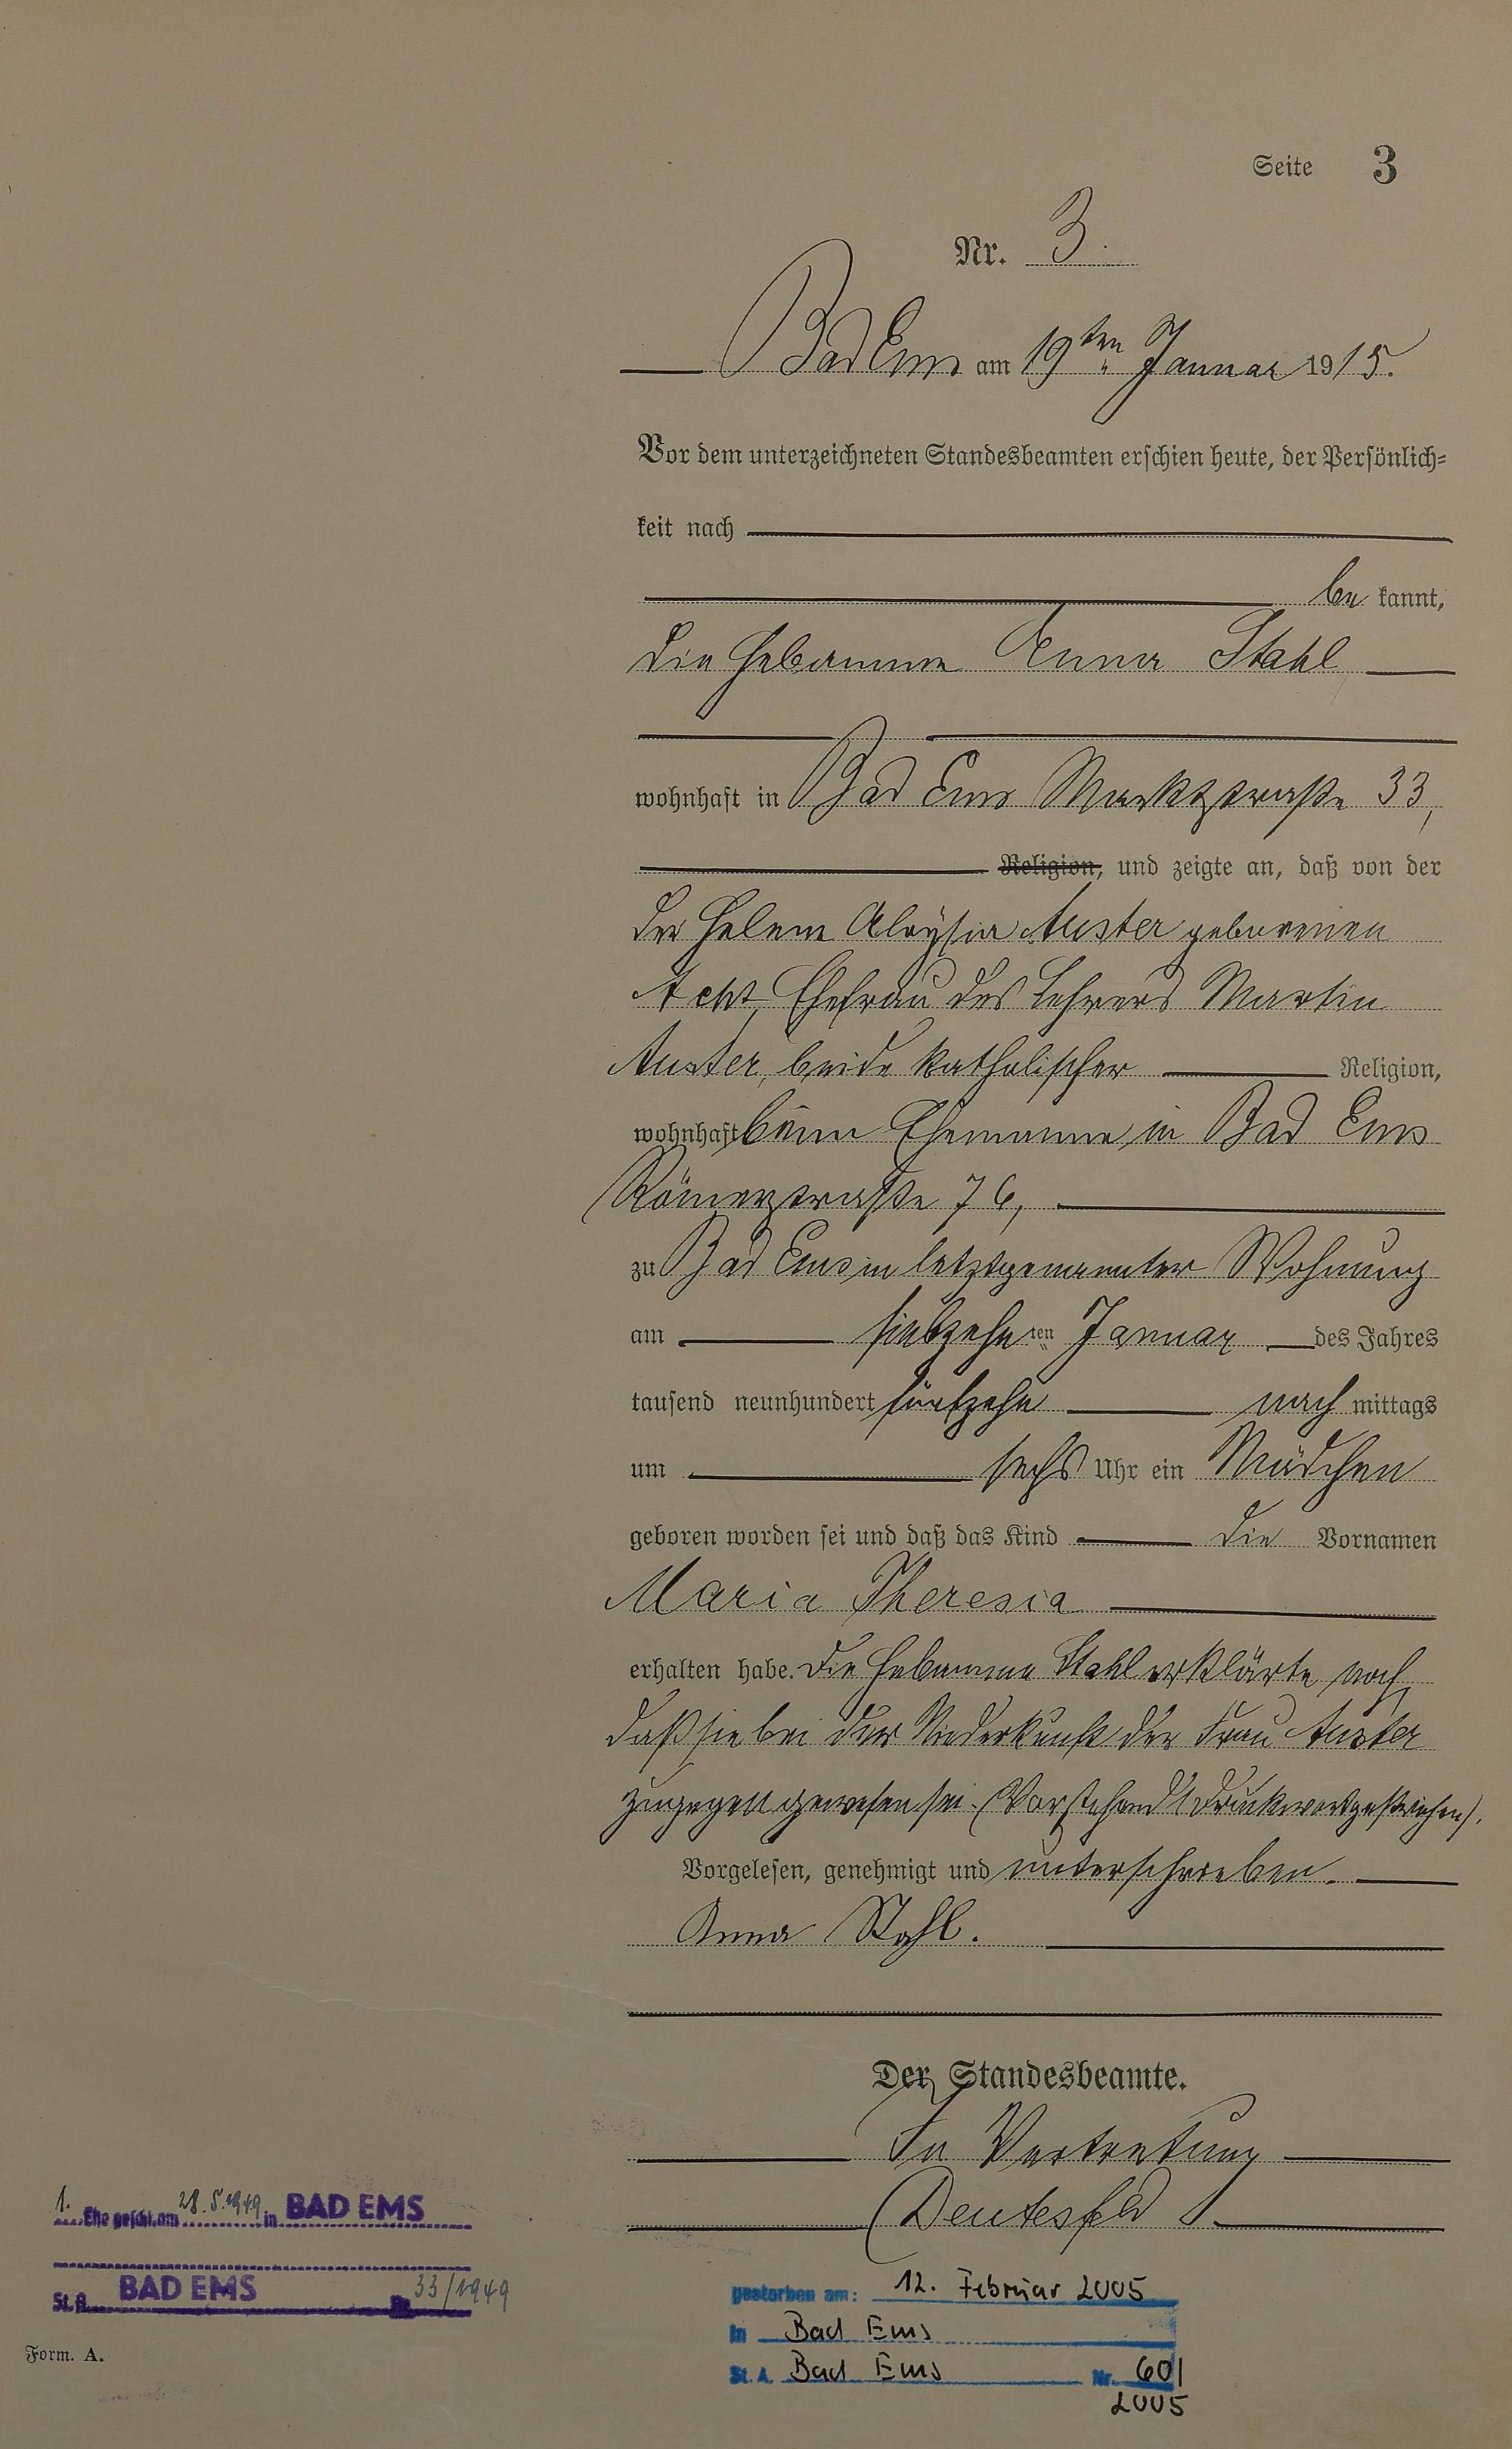 Seite 3
Nr. 3.
Bad Ems am 19ten Januar 1915.
Vor dem unterzeichneten Standesbeamten erschien heute, der Persönlich=
keit nach
be kannt,
die Hebamme Anna Stahl
wohnhaft in Bad Ems Marktstraße 33,
Religion, und zeigte an, daß von der
der Helene Aloysia Auster geborenen
Acht, Ehefrau des Lehrers Martin
Auster, beide katholischer Religion,
wohnhaft beim Ehemanne in Bad Ems
Römerstraße 76,
zu Bad Ems in letztgenannter Wohnung
am siebzehnten Januar des Jahres
tausend neunhundert fünfzehn nach mittags
um sechs Uhr ein Mädchen
geboren worden sei und daß das Kind die Vornamen
Maria Theresia
erhalten habe. Die Hebamme Stahl erklärte noch,
daß sie bei der Niederkunft der Frau Auster
zugegen gewesen sei. (Vorstehend 1 Druckwort gestrichen).
Vorgelesen, genehmigt und unterschrieben.
Anna Stahl.
Der Standesbeamte.
In Vertretung
Deutesfeld
1. Ehe geschl. am 28.5.1949 in BAD EMS
St. A. BAD EMS Nr. 33/1949
gestorben am: 12. Februar 2005
in Bad Ems
St. A. Bad Ems Nr. 60/
2005
Form. A.